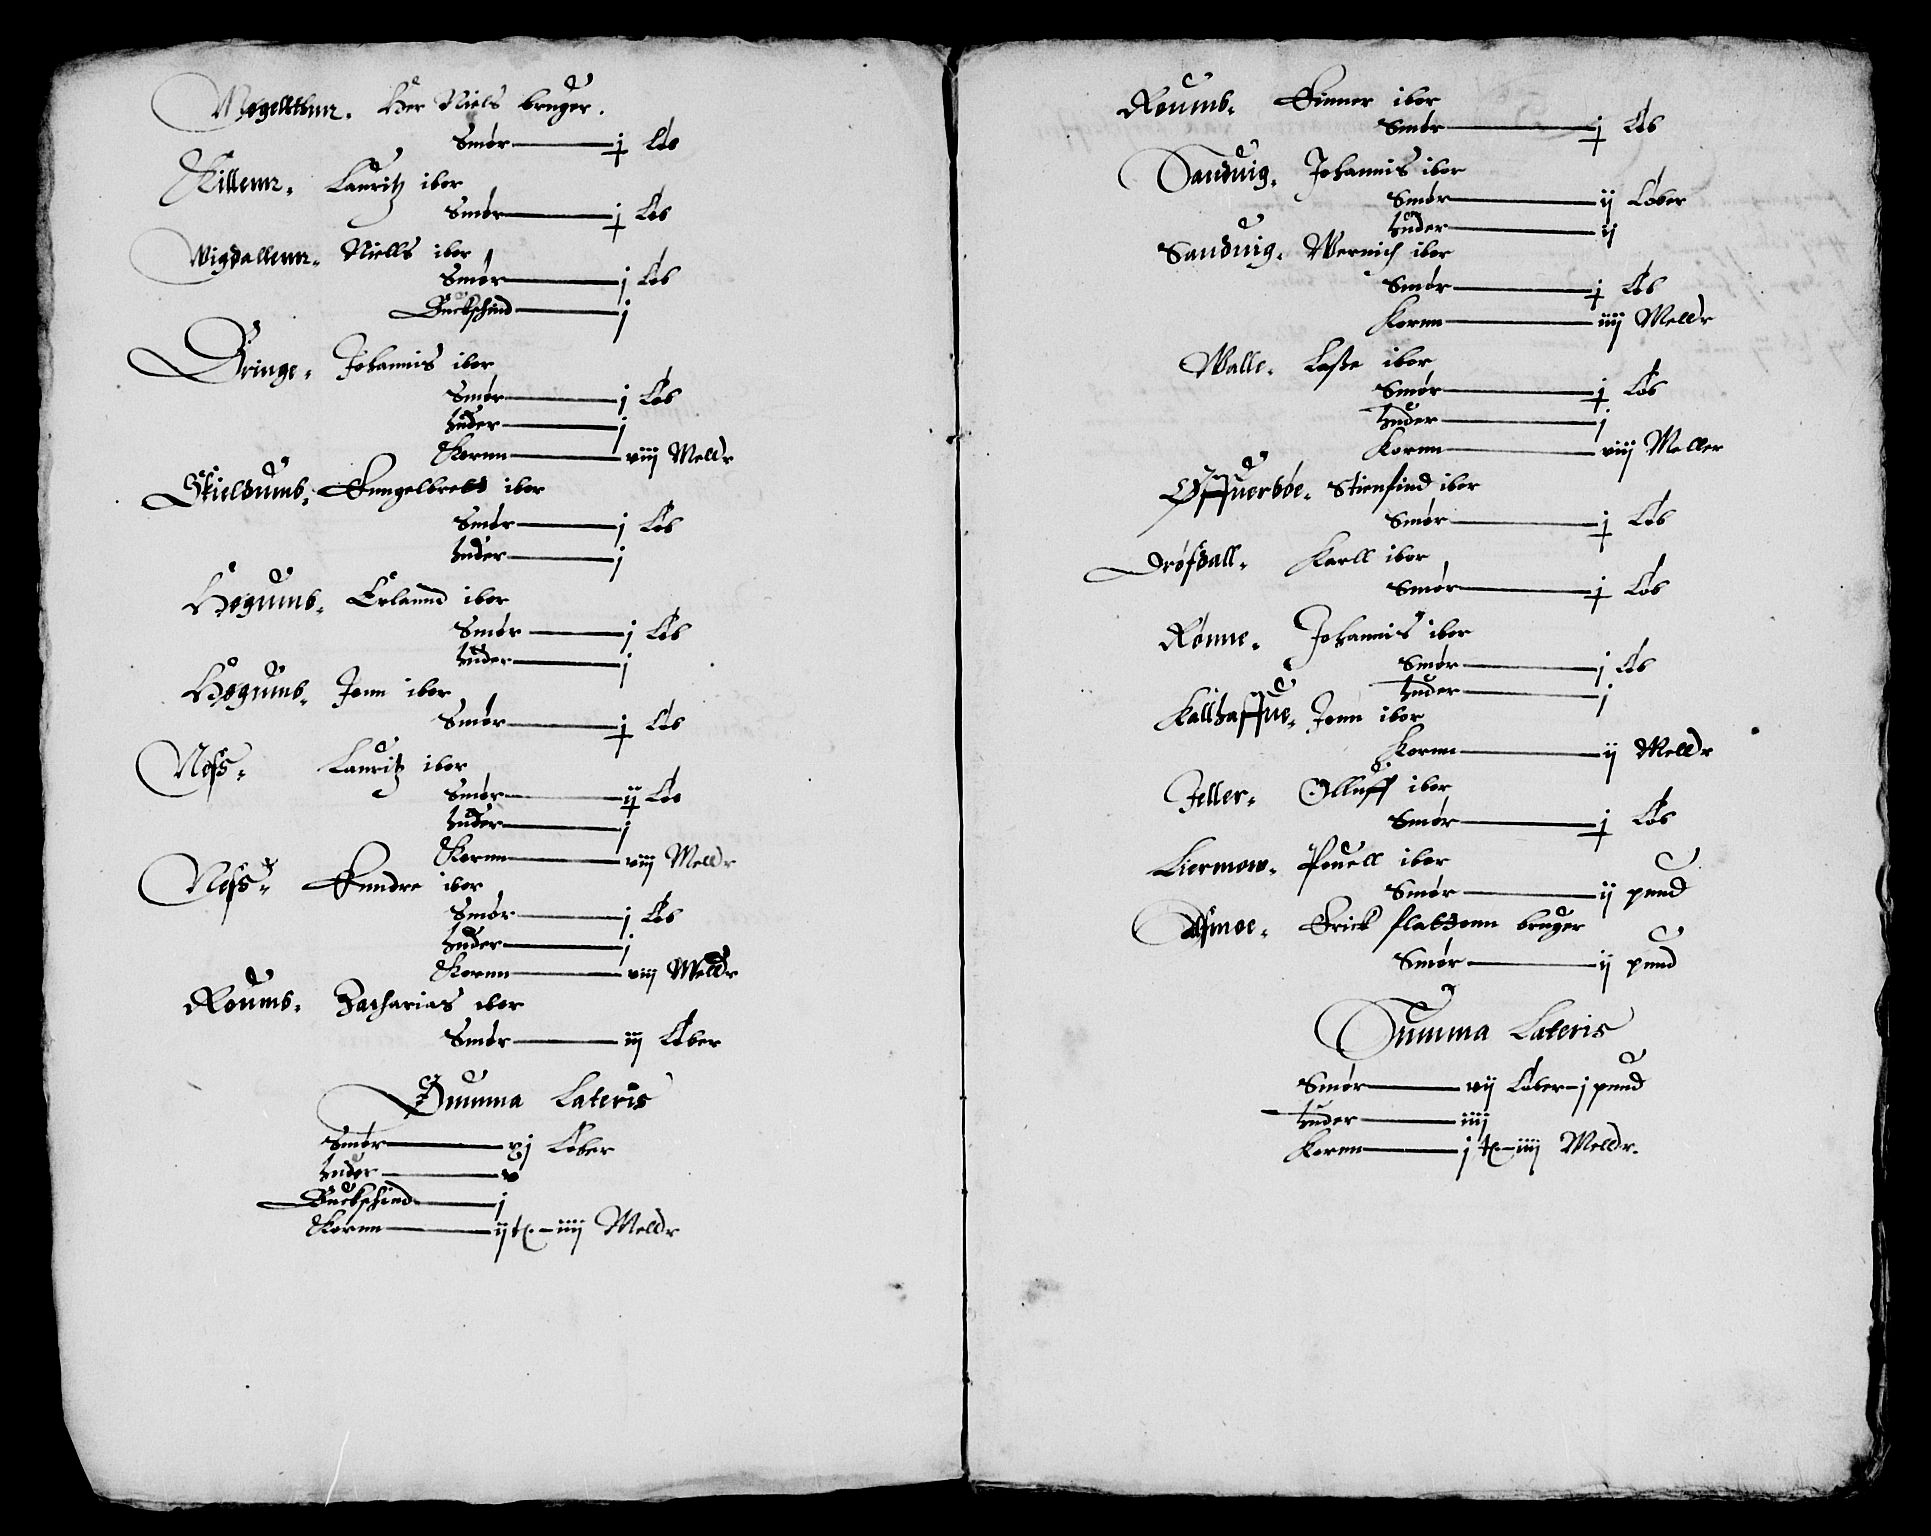 Mogelthun. Her Niels bruger.
Smør — j Løb
Killenn. Lauritz ibor
Smør — j Løb
Wigdallenn. Niells ibor
Smør — j Løb
Buckschind — j
Dringe. Johannis ibor
Smør — j Løb
huder — j
Kornn — viij Melldr
Skieldumb. Enngelbrett ibor
Smør — j Løb
huder — j
Høgumb. Erlannd ibor
Smør — j Løb
huder — j
Høgumb. Jonn ibor
Smør — j Løb
Nefs. Lauritz ibor
Smør — ij Løb
huder — j
Kornn — viij Melldr
Nefs. Enndre ibor
Smør — j Løb
huder — j
Kornn — viij Melldr
Roumb. Zacharias ibor
Smør — iij Løber
Summa Lateris
Smør — xj Løber
huder — v
Buckschind — j
Kornn — ij tn – iiij Melldr
Roumb. Einner ibor
Smør — j Løb
Sanduig. Johannis ibor
Smør — ij Løber
huder — ij
Sanduig. Wernich ibor
Smør — j Løb
Kornn — iiij Melldr
Walle. Lasse ibor
Smør — j Løb
huder — j
Kornn — viij Meller
Øffuerbøe. Stienfind ibor
Smør — j Løb
Drøfdall. Karll ibor
Smør — j Løb
Rønne. Johannis ibor
Smør — j Løb
huder — j
Kallhaffue. Jonn ibor
Kornn — ij Melldr
Jeller. Olluff ibor
Smør — j Løb
Liermow. Pouell ibor
Smør — ij pund
Erick bruger
Smør — ij pund
Summa Lateris
Smør — vij Løber – j pund
huder — iiij
Kornn — j tn – iiij Melldr.